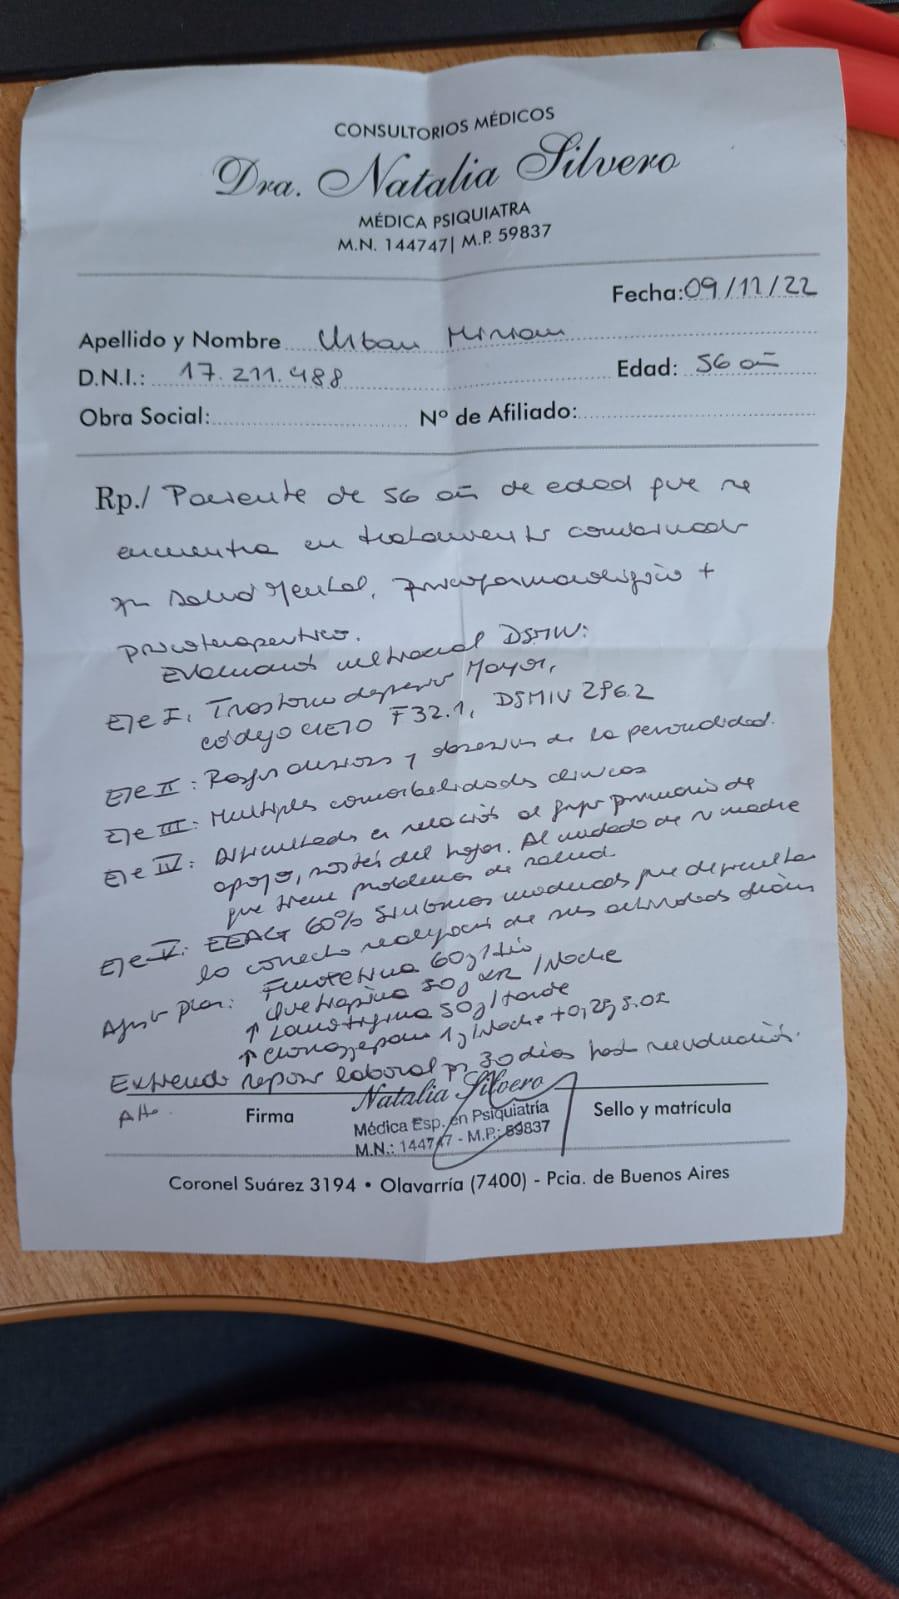 CONSULTORIOS MÉDICOS
Dra. Natalia Silvero
MÉDICA PSIQUIATRA
M.N. 144747| M.P. 59837
Fecha: 09/11/22
Apellido y Nombre Urban Miriam
D.N.I.: 17.211.488 Edad: 56 añ
Obra Social: Nº de Afiliado:
Rp./ Paciente de 56 añ de edad que se
encuentra en tratamiento combinado
Salud Mental, psicofarmacológico +
psicoterapeutico.
Evaluación multiaxial DSMIV:
Eje I: Trastorno depresivo Mayor,
código CIE10 F32.1, DSMIV 296.2
Eje II: Rasgos y obsesivos de la personalidad.
Eje III: Multiples comorbilidades clinicas
Eje IV: Dificultades en relación al grupo primario de
apoyo, sostén del hogar. Al cuidado de su madre
que tiene problemas de salud.
Eje V: EEAG 60% Sintomas moderados que dificultan
la correcta realización de sus actividades diarias
Ajusto plan: 60g/día
Quetiapina 50g XR /Noche
↑ Lamotrigina 50g/tarde
↑ Clonazepam 1g/Noche + 0,25g S.O.S
Extiendo reposo laboral por 30 días hasta reevaluación.
Atte.
Firma Natalia Silvero Sello y matrícula
Médica Esp. en Psiquiatría
M.N.: 144747 - M.P.: 59837
Coronel Suárez 3194 • Olavarría (7400) - Pcia. de Buenos Aires